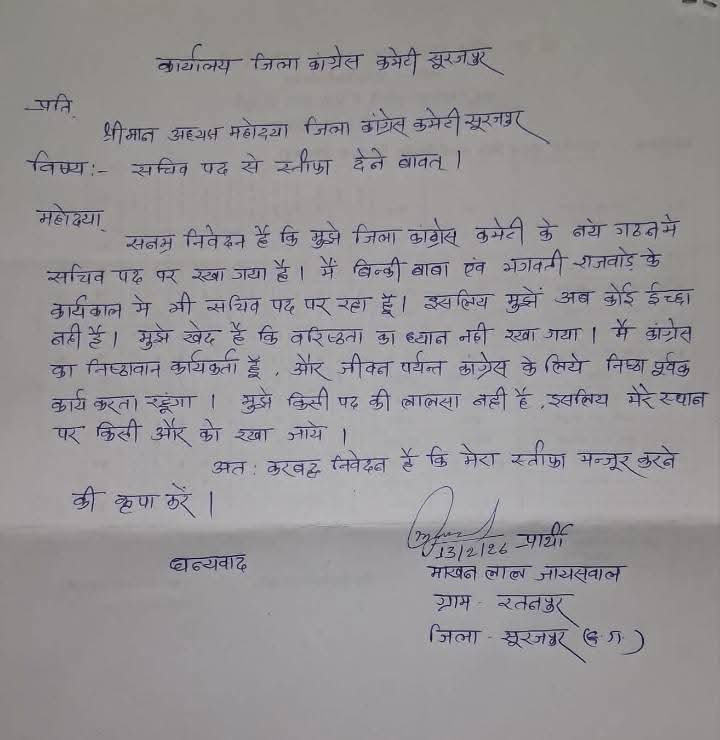 कार्यालय जिला कांग्रेस कमेटी सूरजपुर
प्रति,
श्रीमान अध्यक्ष महोदया जिला कांग्रेस कमेटी सूरजपुर
विषय:- सचिव पद से स्तीफा देने बावत् ।
महोदया,
सनम्र निवेदन है कि मुझे जिला कांग्रेस कमेटी के नये गठन मे
सचिव पद पर रखा गया है । मैं बिन्की बाबा एंव भगवती राजवाड़े के
कार्यकाल मे भी सचिव पद पर रहा हूँ । इसलिय मुझें अब कोई ईच्छा
नही है । मुझे खेद है कि वरिष्ठता का ध्यान नही रखा गया । मै कांग्रेस
का निष्ठावान कार्यकर्ता हूँ , और जीवन पर्यन्त कांग्रेस के लिये निष्ठा पूर्वक
कार्य करता रहूंगा । मुझे किसी पद की लालसा नही है , इसलिय मेरे स्थान
पर किसी और को रखा जाये ।
अत: करबद्ध निवेदन है कि मेरा स्तीफा मन्जूर करने
की कृपा करें ।
13/2/26 प्रार्थी
धन्यवाद
माखन लाल जायसवाल
ग्राम - रतनपुर
जिला - सूरजपुर (छ.ग.)